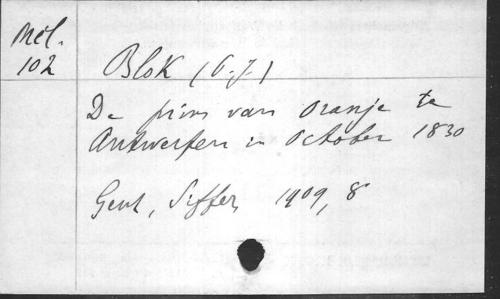 Mél.
102
Blok (P.J.)
De prins van Oranje te
Antwerpen in October 1830
Gent, Siffer, 1909, 8°